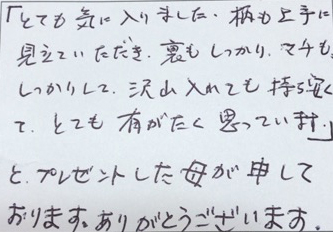 「とても気に入りました。柄も上手に
見立ていただき、裏もしっかり、マチも
しっかりして、沢山入れても持ち安く
て、とても有がたく思っています。」
と、プレゼントした母が申して
おります。ありがとうございます。